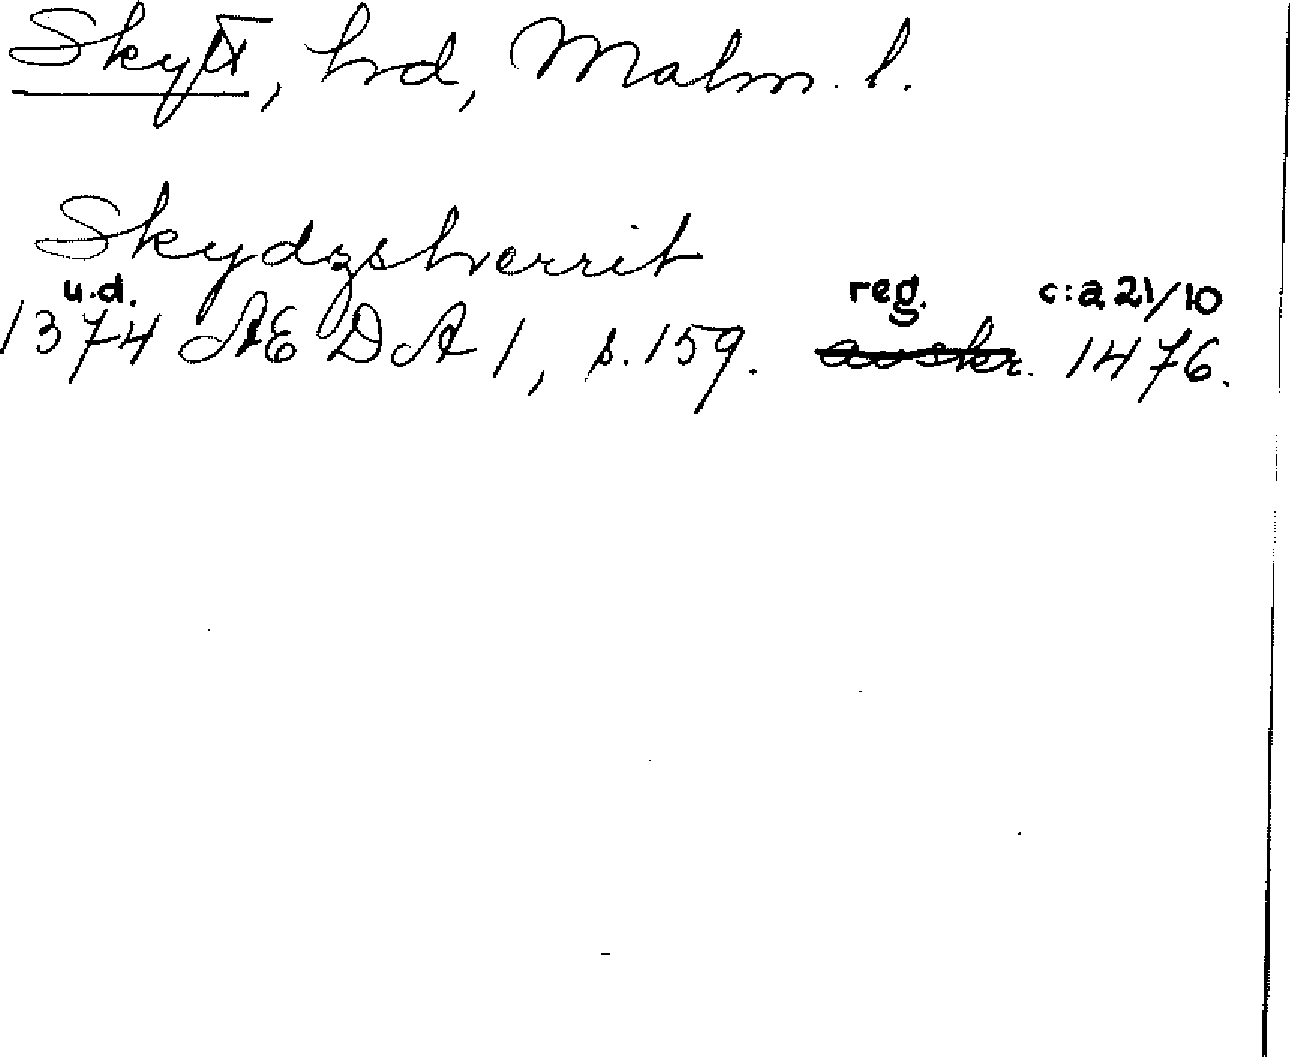 Skytt, hd, Malm. l.
Skydzsherrit
u.d. reg. c:a 21/10
1374 ÆDA 1, s. 159. avskr. 1476.